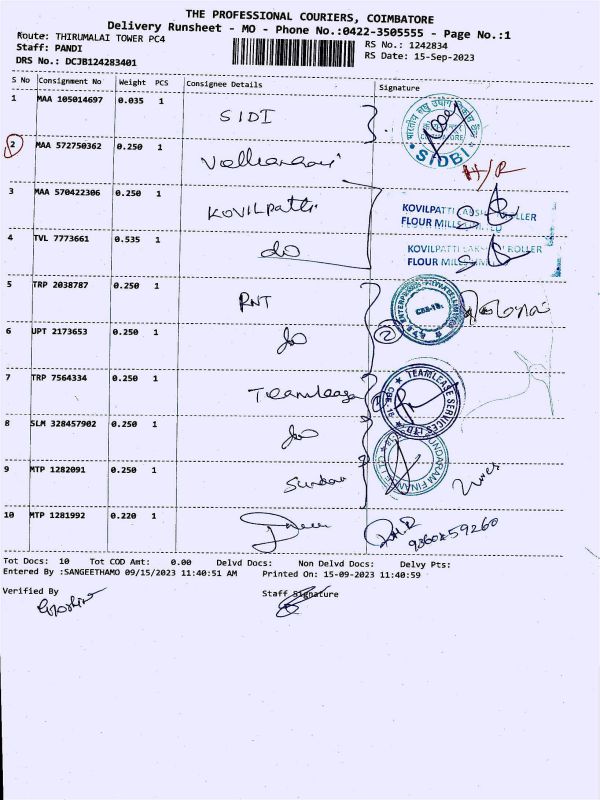 THE PROFESSIONAL COURIERS, COIMBATORE
Delivery Runsheet - MO - Phone No.:0422-3505555 - Page No.:1
Route: THIRUMALAI TOWER PC4
RS No.: 1242834
Staff: PANDI
RS Date: 15-Sep-2023
DRS No.: DCJB124283401
S No Consignment No Weight PCS Consignee Details Signature
1 MAA 105014697 0.035 1 SIDI
SIDBI
2 MAA 572750362 0.250 1
H/R
3 MAA 570422306 0.250 1 KOVILPatti
KOVILPATTI LAKSHMI ROLLER
FLOUR MILLS LIMITED
4 TVL 7773661 0.535 1 do
KOVILPATTI LAKSHMI ROLLER
FLOUR MILLS LIMITED
5 TRP 2038787 0.250 1 RNT
CBE-18.
6 UPT 2173653 0.250 1 do
2
7 TRP 7564334 0.250 1 Teamlease
TEAMLEASE SERVICES LTD CBE. 18
8 SLM 328457902 0.250 1 do
SUNDARAM FINANCE LTD
9 MTP 1282091 0.250 1
10 MTP 1281992 0.220 1
Tot Docs: 10 Tot COD Amt: 0.00 Delvd Docs: Non Delvd Docs: Delvy Pts:
Entered By :SANGEETHAMO 09/15/2023 11:40:51 AM Printed On: 15-09-2023 11:40:59
Verified By Staff Signature